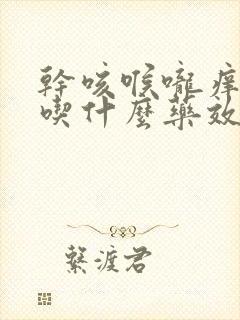 幹咳喉嚨痒
喫什麼藥效
繫渡君